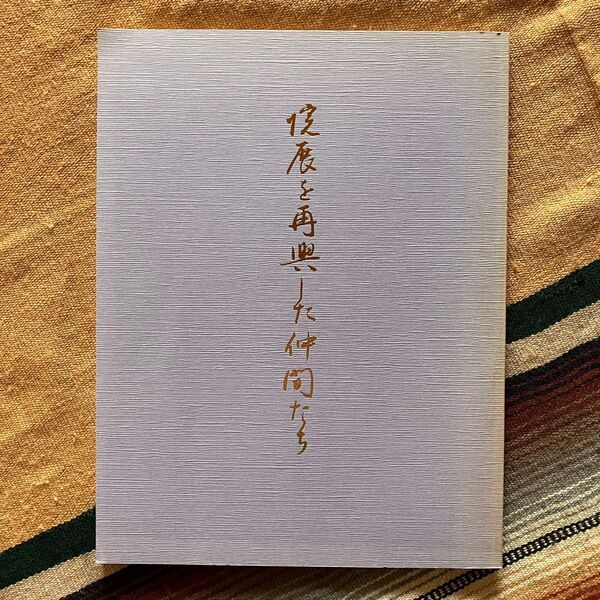 院展を再興した仲間たち